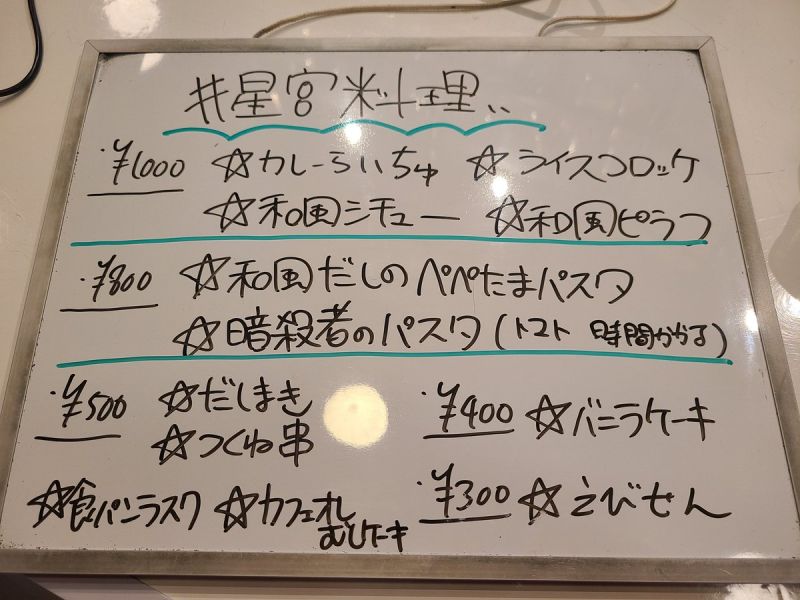 #星宮料理..
・¥1000 ☆カレーらいちゅ ☆ライスコロッケ
☆和風シチュー ☆和風ピラフ
・¥800 ☆和風だしのペペたまパスタ
☆暗殺者のパスタ(トマト 時間かかる)
・¥500 ☆だしまき
☆つくね串
☆食パンラスク ☆カフェオレ
むしケーキ
・¥400 ☆バニラケーキ
・¥300 ☆えびせん